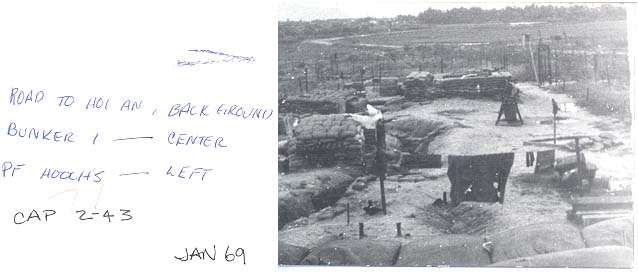 ROAD TO HOI AN, BACK GROUND
BUNKER 1 — CENTER
PF HOOCH'S — LEFT
CAP 2-43
JAN 69